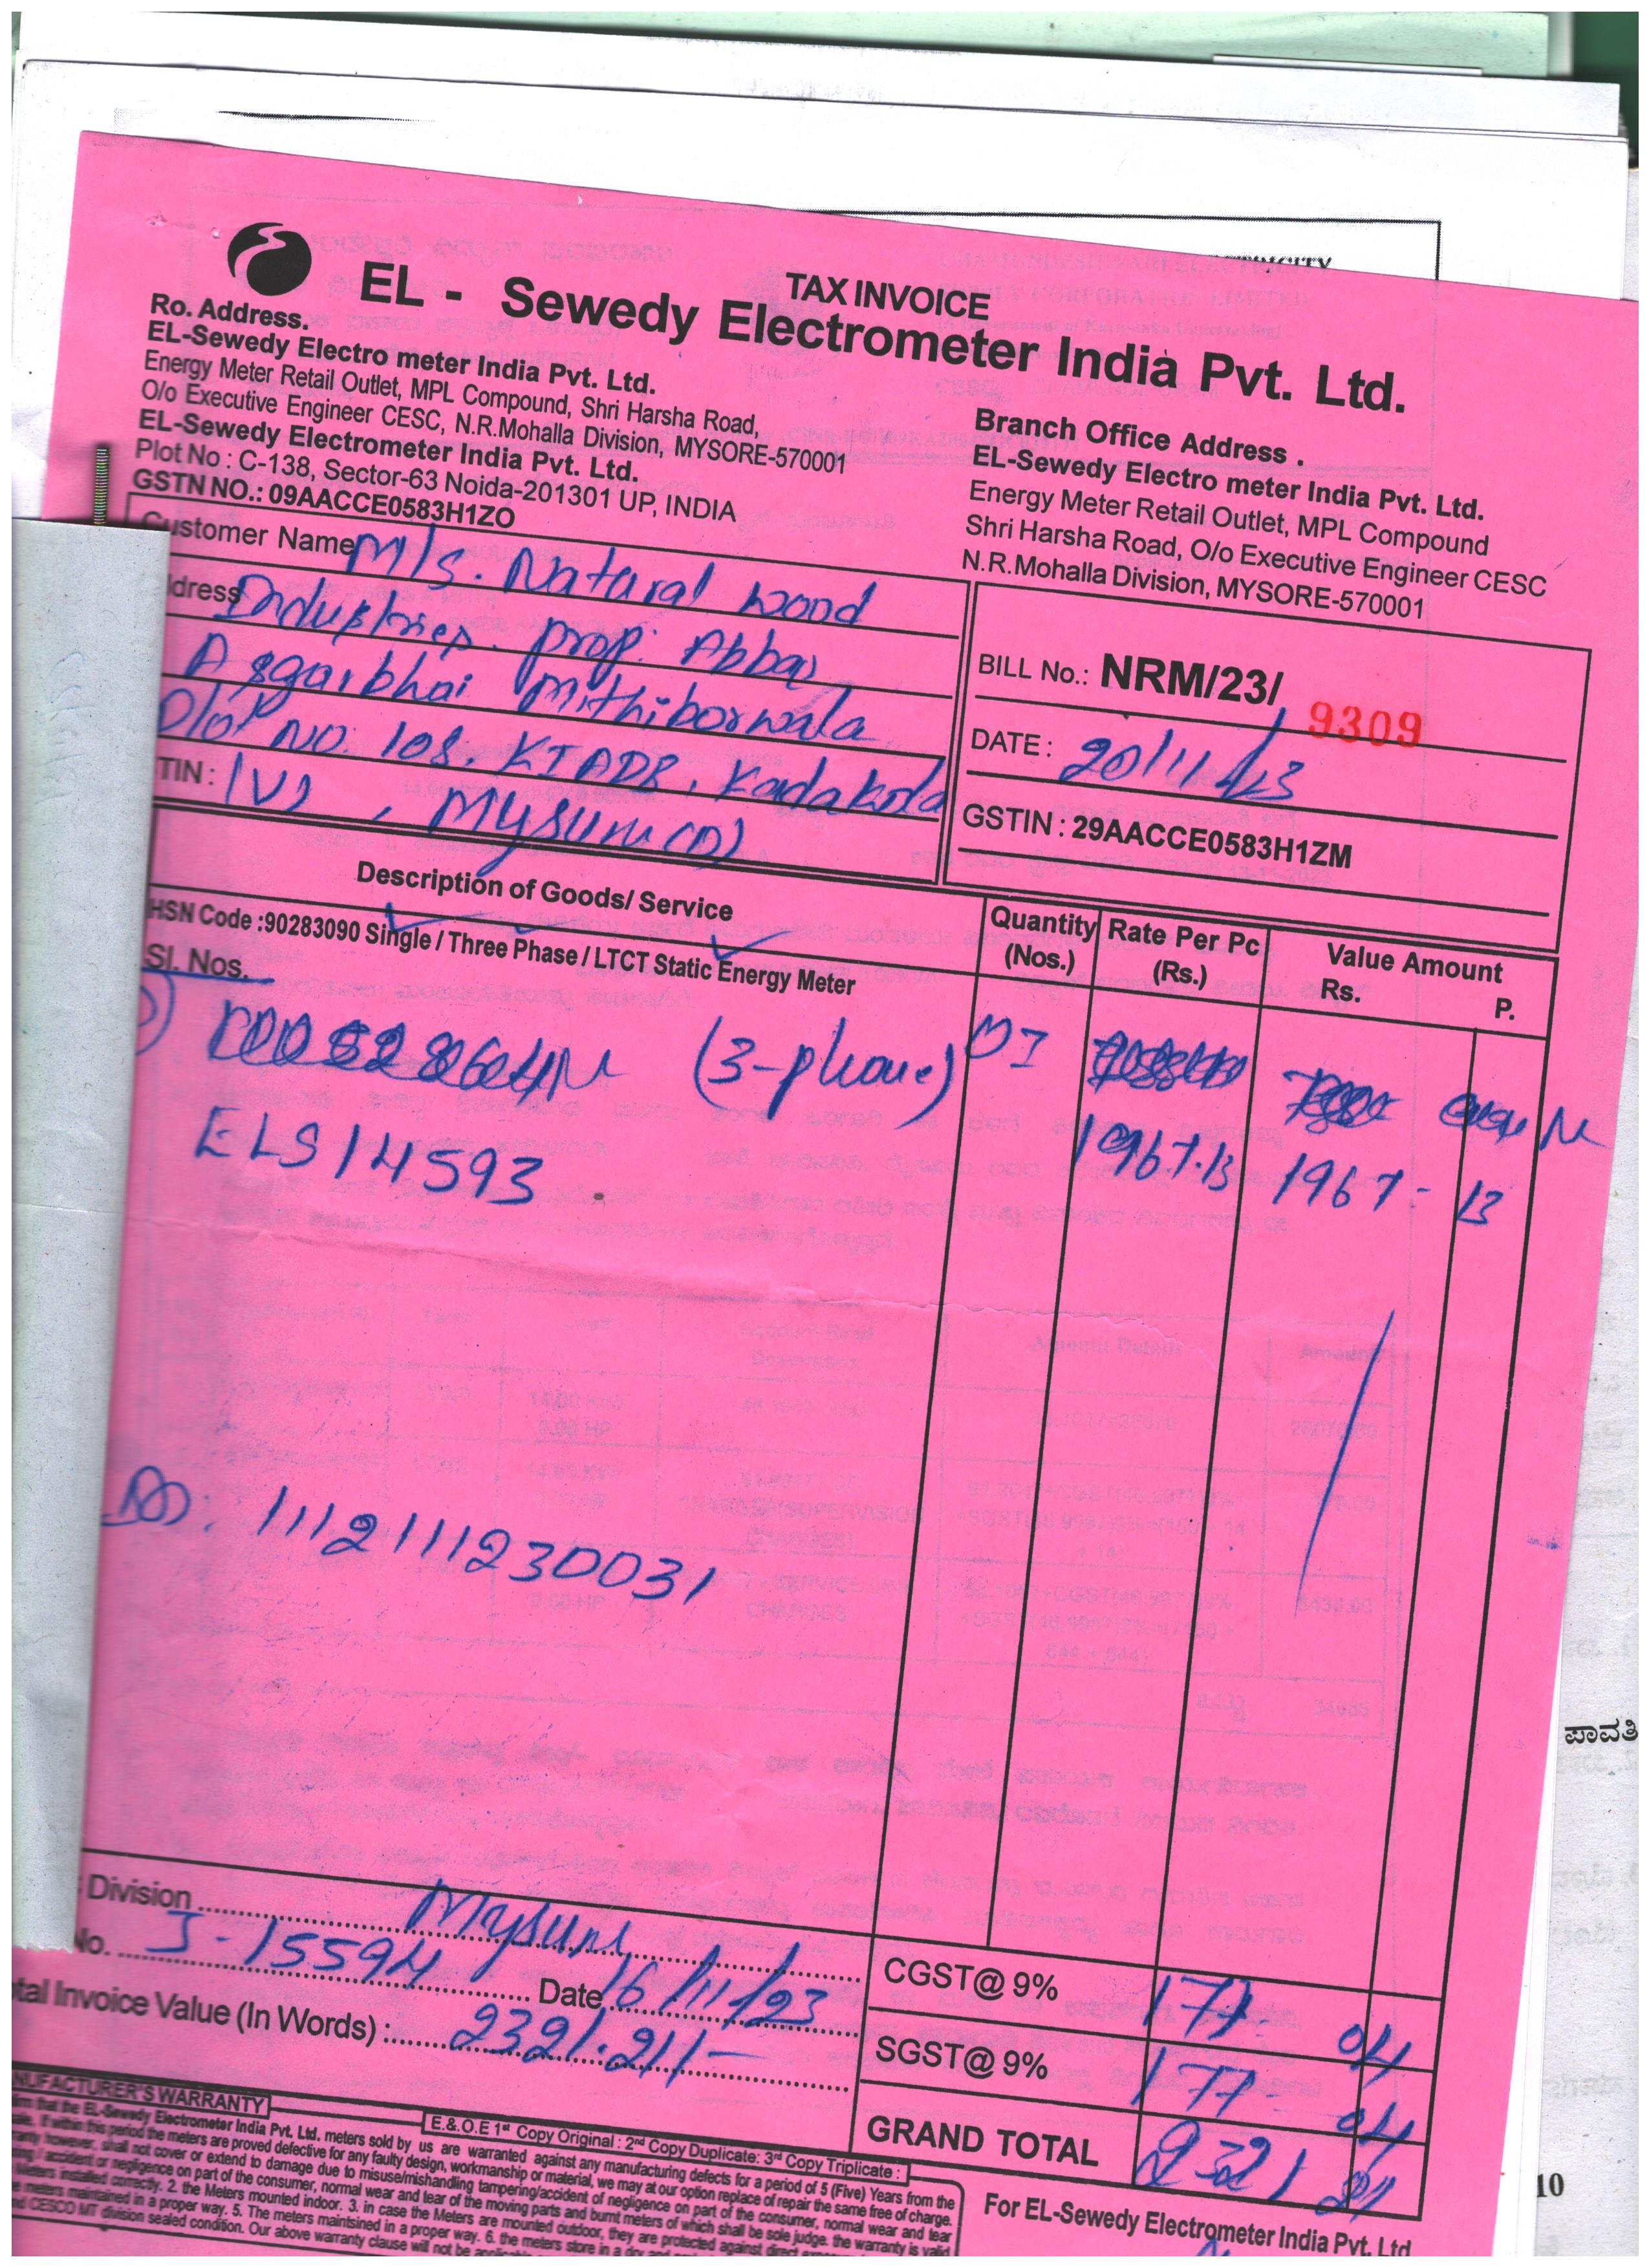 TAX INVOICE
EL - Sewedy Electrometer India Pvt. Ltd.
Ro. Address.
EL-Sewedy Electro meter India Pvt. Ltd.
Energy Meter Retail Outlet, MPL Compound, Shri Harsha Road,
O/o Executive Engineer CESC, N.R.Mohalla Division, MYSORE-570001
EL-Sewedy Electrometer India Pvt. Ltd.
Plot No : C-138, Sector-63 Noida-201301 UP, INDIA
GSTN NO.: 09AACCE0583H1ZO
Branch Office Address .
EL-Sewedy Electro meter India Pvt. Ltd.
Energy Meter Retail Outlet, MPL Compound
Shri Harsha Road, O/o Executive Engineer CESC
N.R.Mohalla Division, MYSORE-570001
Customer Name M/s. Natural wood
dress Industries. prop: Abbas
Asgarbhai Mithiborwala
Plot No. 108, KIADB, Kadakola
TIN : (V), Mysuru (D)
BILL No.: NRM/23/ 9309
DATE : 20/11/23
GSTIN : 29AACCE0583H1ZM
Description of Goods/ Service
Quantity (Nos.)
Rate Per Pc (Rs.)
Value Amount
Rs. P.
HSN Code :90283090 Single / Three Phase / LTCT Static Energy Meter
Sl. Nos.
(3-phase)
ELS14593 1967.13 1967 - 13
: 1112111230031
Division Mysuru
No. J-15594 Date 16/11/23
tal Invoice Value (In Words) : 2321.21/-
CGST@ 9% 177 04
SGST@ 9% 177 04
GRAND TOTAL 2321 21
NUFACTURER'S WARRANTY
E.& .O.E 1st Copy Original : 2nd Copy Duplicate: 3rd Copy Triplicate :
irm that the EL-Sewedy Electrometer India Pvt. Ltd. meters sold by us are warranted against any manufacturing defects for a period of 5 (Five) Years from the
sale. If within this period the meters are proved defective for any faulty design, workmanship or material, we may at our option replace of repair the same free of charge.
ranty however, shall not cover or extend to damage due to misuse/mishandling tampering/accident of negligence on part of the consumer, normal wear and tear
ring / accident or negligence on part of the consumer, normal wear and tear of the moving parts and burnt meters of which shall be sole judge. the warranty is valid
Meters installed correctly. 2. the Meters mounted indoor. 3. in case the Meters are mounted outdoor, they are protected against direct
e meters maintained in a proper way. 5. The meters maintsined in a proper way. 6. the meters store in a dry and
nd CESCO MT division sealed condition. Our above warranty clause will not be
For EL-Sewedy Electrometer India Pvt. Ltd
ಪಾವತಿ
10